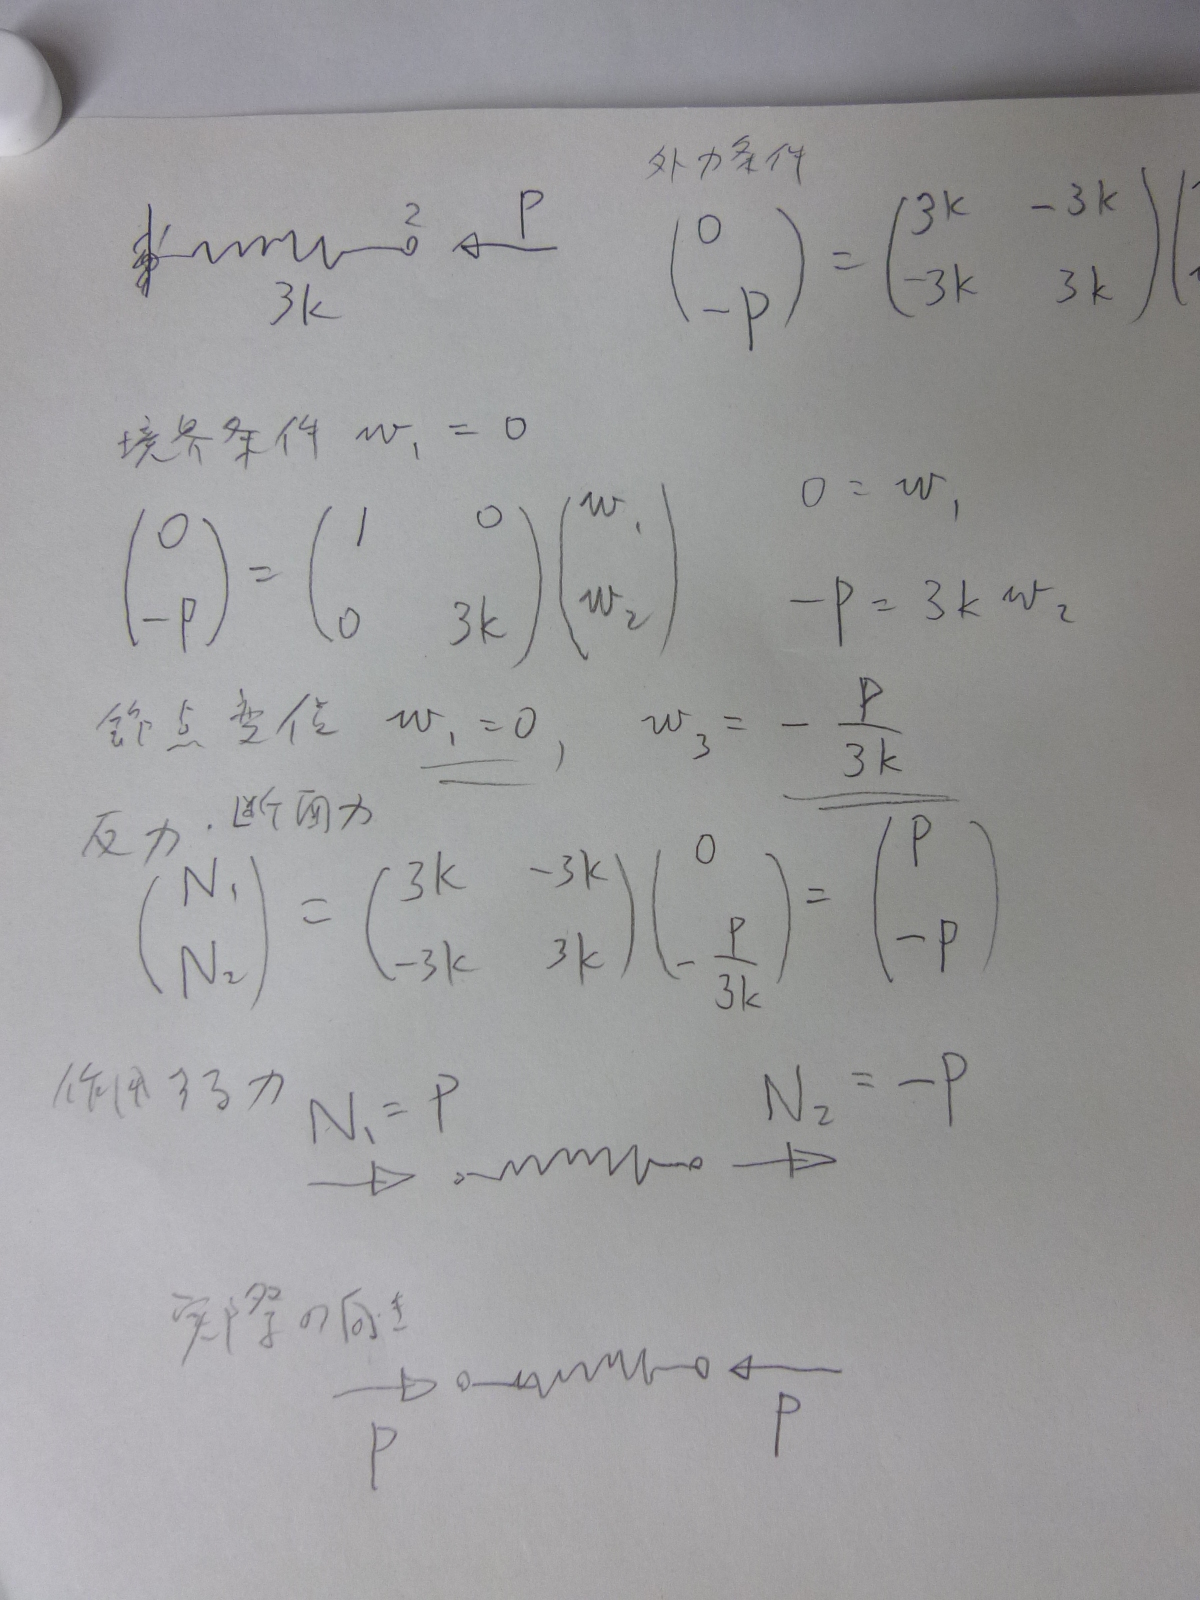 外力条件
2 P
3k
(0 -P) = (3k -3k -3k 3k)
境界条件 w₁ = 0
(0 -P) = (1 0 0 3k) (w₁ w₂)
0 = w₁
-P = 3k w₂
節点変位 w₁ = 0, w₃ = - P/3k
反力・断面力
(N₁ N₂) = (3k -3k -3k 3k) (0 -P/3k) = (P -P)
作用する力 N₁ = P N₂ = -P
実際の向き
P P